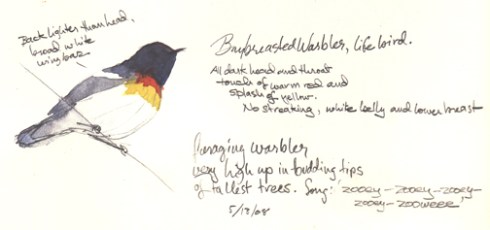 Back lighter than head,
broad white
wing bars
Baybreasted Warbler, life bird.
All dark head and throat
touch of warm red and
splash of yellow.
No streaking, white belly and lower breast
Foraging Warbler
very high up in budding tips
of tallest trees. Song: 'zooey-zooey-zooey-
zooey-zooweee'
5/12/08